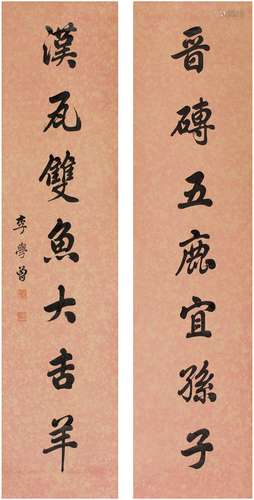 晋磚五鹿宜孫子
漢瓦雙魚大吉羊
李學曾